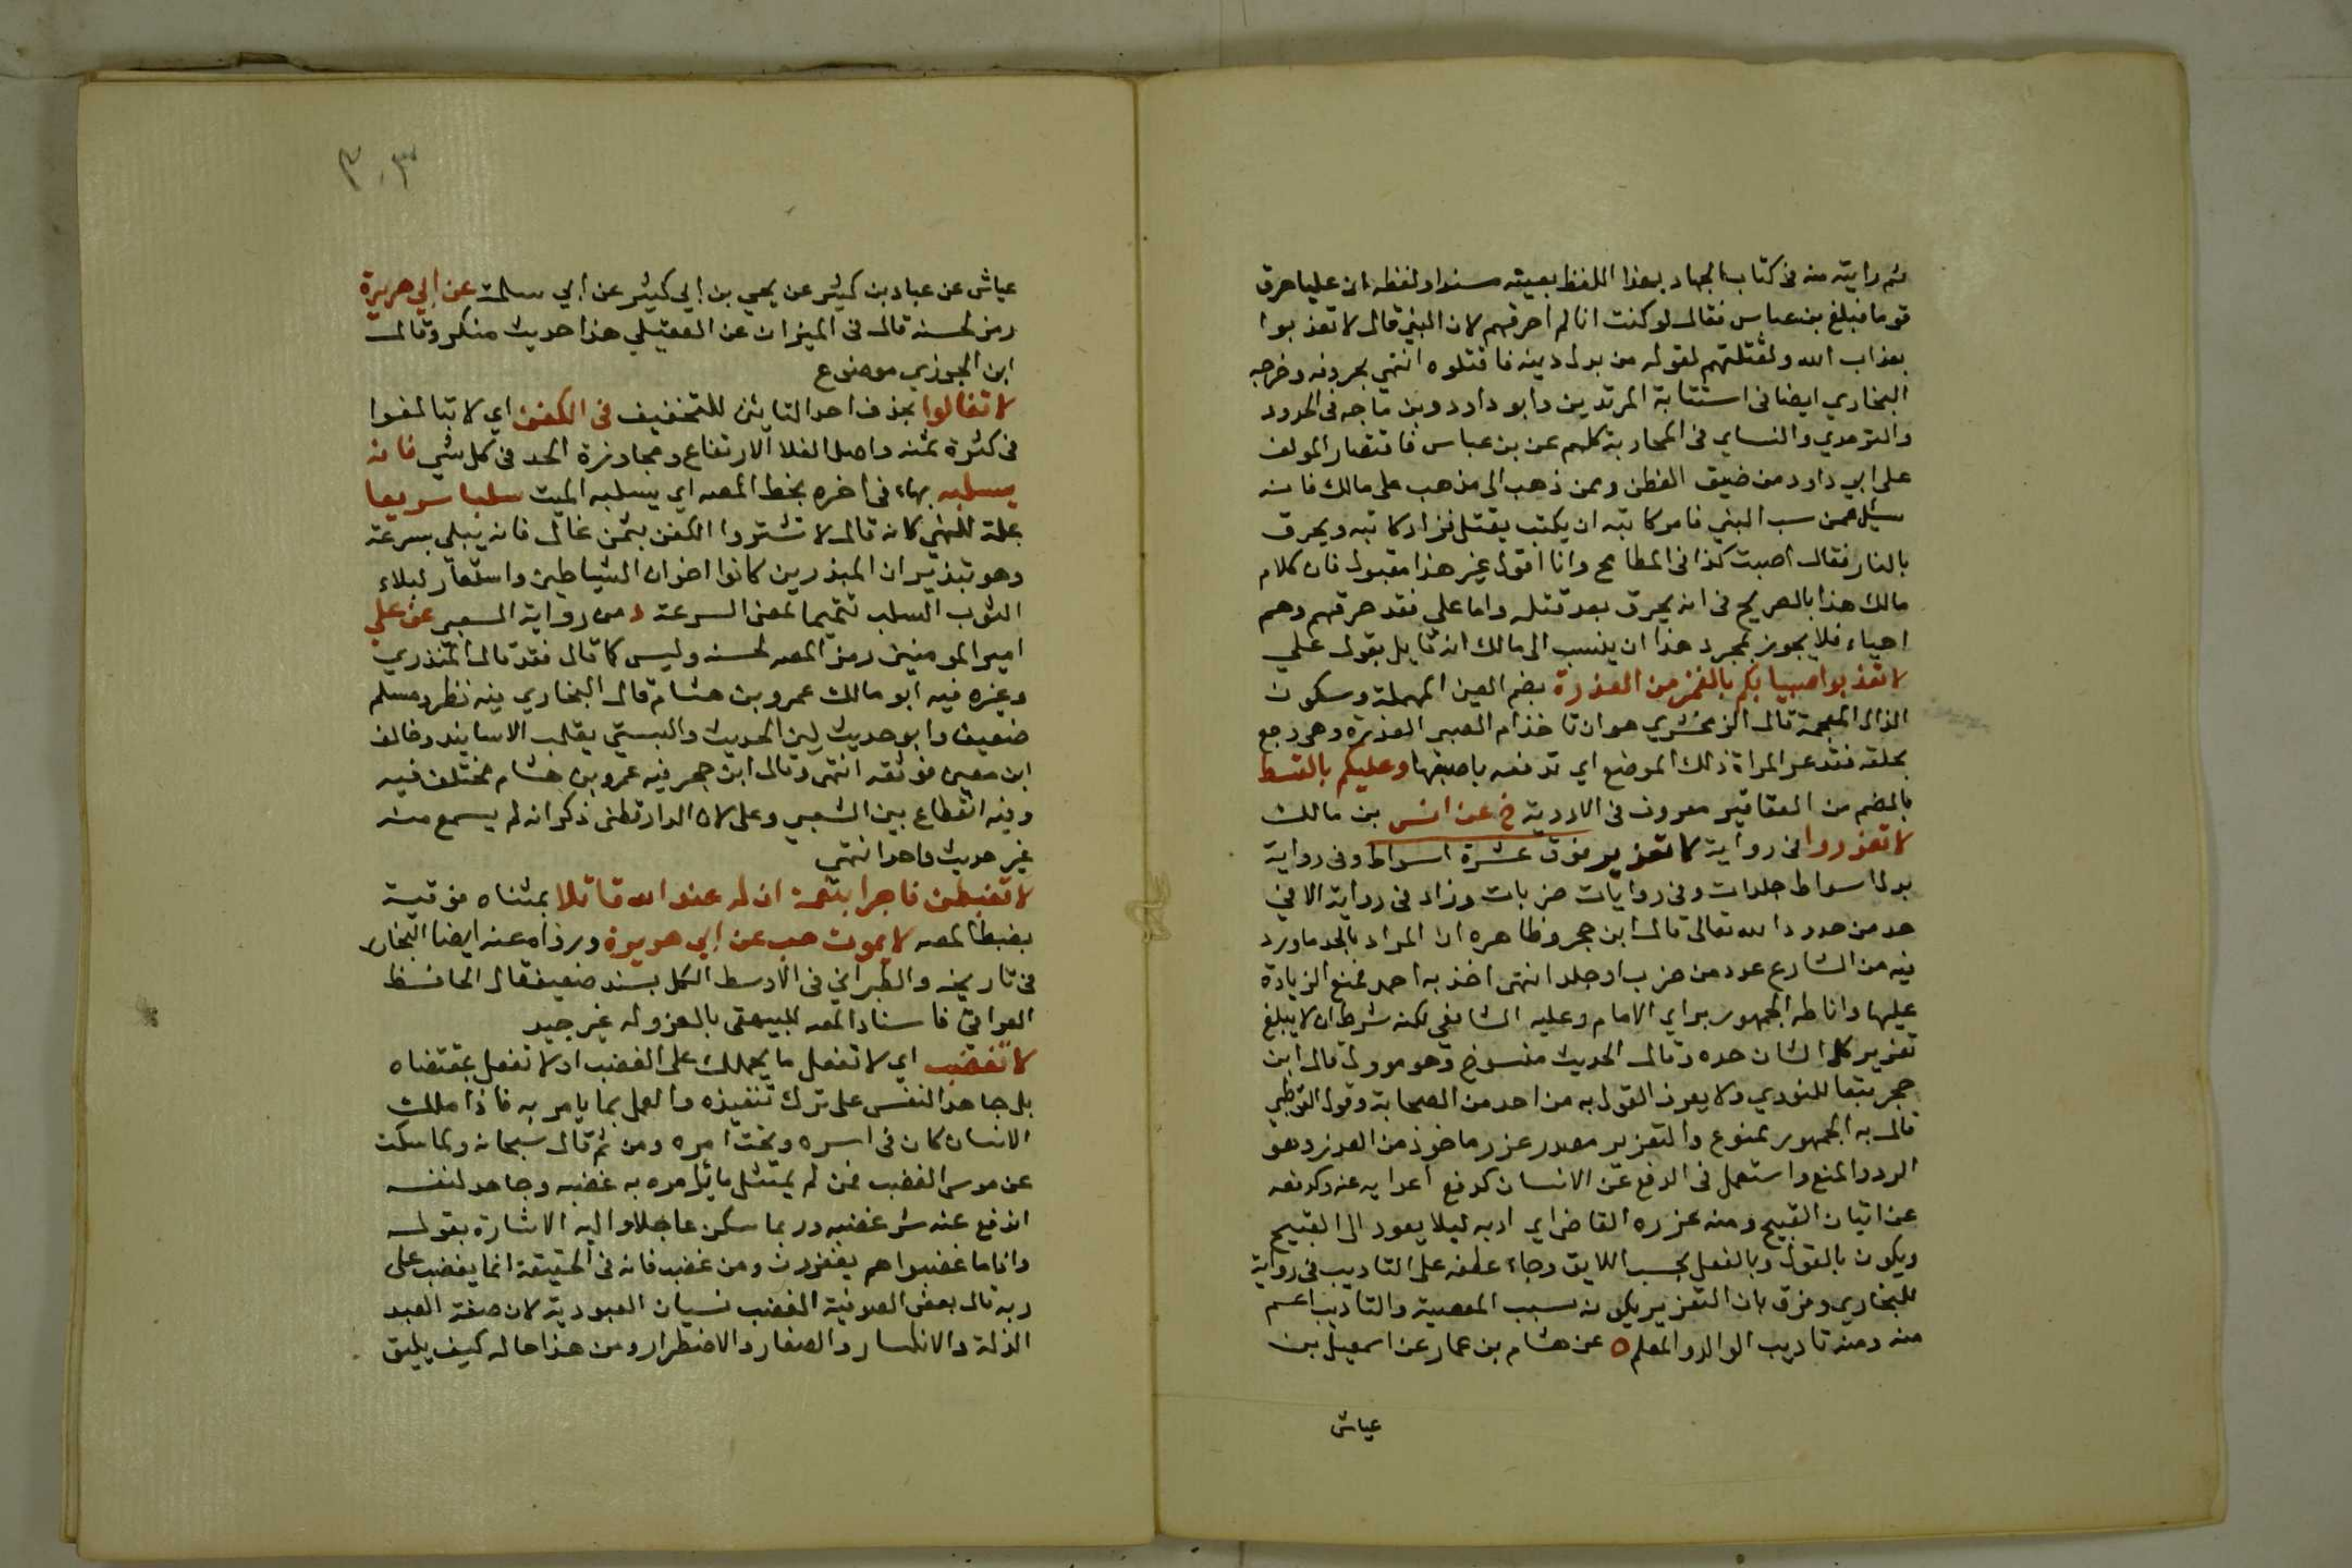 ثم رايته منه في كتاب الجهاد بهذا اللفظ بعينه مسندا ولفظه ان عليا حرق
قوما فبلغ بن عباس فقال لو كنت انا لم احرقهم لان النبي قال لا تعذبوا
بعذاب الله ولقتلتهم لقوله من بدل دينه فاقتلوه انتهى بحروفه وخرجه
البخاري ايضا في استتابة المرتدين وابو داود وبن ماجه في الحدود
والترمدي والنساي في المحاربة كلهم عن بن عباس فاقتصار المولف
على ابي داود من ضيق الفطن وممن ذهب الى مذهب على مالك فانه
سئل عمن سب النبي فامر كاتبه ان يكتب يقتل فزاد كاتبه ويحرق
بالنار فقال اصبت كذا في المطامح وانا اقول غير هذا مقبول فان كلام
مالك هذا بالصريح في انه يحرق بعد قتله واما علي فقد حرقهم وهم
احياء فلا يجوز بمجرد هذا ان ينسب الى مالك انه قايل بقول علي
لا تعذبوا صبيانكم بالغمز من العذرة بضم العين المهملة وسكون
الذال المعجمة قال الزمخشري هو ان تاخذ ام الصبي العذرة وهي وجع
بحلقه فتدغر المراة ذلك الموضع اي تدفعه باصبعها وعليكم بالقسط
بالضم من العقاقير معروف في الادوية خ عن انس بن مالك
لا تعزروا في رواية لا تعزير فوق عشرة اسواط وفي رواية
بدل اسواط جلدات وفي روايات ضربات وزاد في رواية الا في
حد من حدود الله تعالى قال ابن حجر وظاهره ان المراد بالحد ما ورد
فيه من الشارع عدد من ضرب او جلد انتهى اخذ به احمد فمنع الزيادة
عليها واناطه الجمهور براي الامام وعليه الشافعي لكنه شرط ان لا يبلغ
تعزير كل انسان حده وقال الحديث منسوخ وهو موول قال ابن
حجر تبعا للنووي ولا يعرف القول به من احد من الصحابة وقول القرطبي
قال به الجمهور ممنوع والتعزير مصدر عزر ماخوذ من العزر وهو
الرد والمنع واستعمل في الدفع عن الانسان كدفع اعدايه عنه وكدفعه
عن اتيان القبيح ومنه عزره القاضي اي ادبه ليلا يعود الى القبيح
ويكون بالقول وبالفعل بحسب اللايق وجاء عطفه على التاديب في رواية
للبخاري وفرق بان التعزير يكون بسبب المعصية والتاديب اعم
منه ومنه تاديب الوالد والمعلم ه عن هشام بن عمار عن اسمعيل بن
عياش
٣٠٣
عياش عن عباد بن كثير عن يحي بن ابي كثير عن ابي سلمة عن ابي هريرة
رمز لحسنه قال في الميزان عن العقيلي هذا حديث منكر وقال
ابن الجوزي موضوع
لا تغالوا بحذف احد التايين للتخفيف في الكفن اي لا تبالغوا
في كثرة ثمنه واصل الغلا الارتفاع ومجاوزة الحد في كل شي فانه
يسلبه بهاء في اخره بخط المص اي يسلبه الميت سلبا سريعا
علة للنهي كانه قال لا تشتروا الكفن بثمن غال فانه يبلى بسرعة
وهو تبذير ان المبذرين كانوا اخوان الشياطين واستعار لبلاء
الثوب السلب تتميما لمعنى السرعة د من رواية الشعبي عن علي
امير المومنين رمز المص لحسنه وليس كما قال فقد قال المنذري
وغيره فيه ابو مالك عمرو بن هشام قال البخاري فيه نظر ومسلم
ضعيف وابو حديث لين الحديث والبستي يقلب الاسانيد وخالف
ابن معين فوثقه انتهى وقال ابن حجر فيه عمرو بن هشام مختلف فيه
وفيه انقطاع بين الشعبي وعلي لان الدارقطني ذكر انه لم يسمع منه
غير حديث واحد انتهى
لا تغبطن فاجرا بنعمة ان له عند الله قاتلا بمثناه فوقية
بضبط المص لا يموت هب عن ابي هريرة ورواه عنه ايضا البخار
في تاريخه والطبراني في الاوسط الكل بسند ضعيف قال الحافظ
العراقي فاسناد المص للبيهقي بالعزو له غير جيد
لا تغضب اي لا تفعل ما يحملك على الغضب او لا تفعل بمقتضاه
بل جاهد النفس على ترك تنفيذه والعمل بما يامر به فاذا ملك
الانسان كان في اسره وتحت امره ومن ثم قال سبحانه ولما سكت
عن موسى الغضب فمن لم يمتثل ما يامره به غضبه وجاهد لنفسه
اندفع عنه شر غضبه وربما سكن عاجلا واليه الاشارة بقوله
واذا ما غضبوا هم يغفرون ومن غضب فانه في الحقيقة انما يغضب على
ربه قال بعض الصوفية الغضب نسيان العبودية لان صفة العبد
الذلة والانكسار والصغار والاضطرار ومن هذا حاله كيف يليق